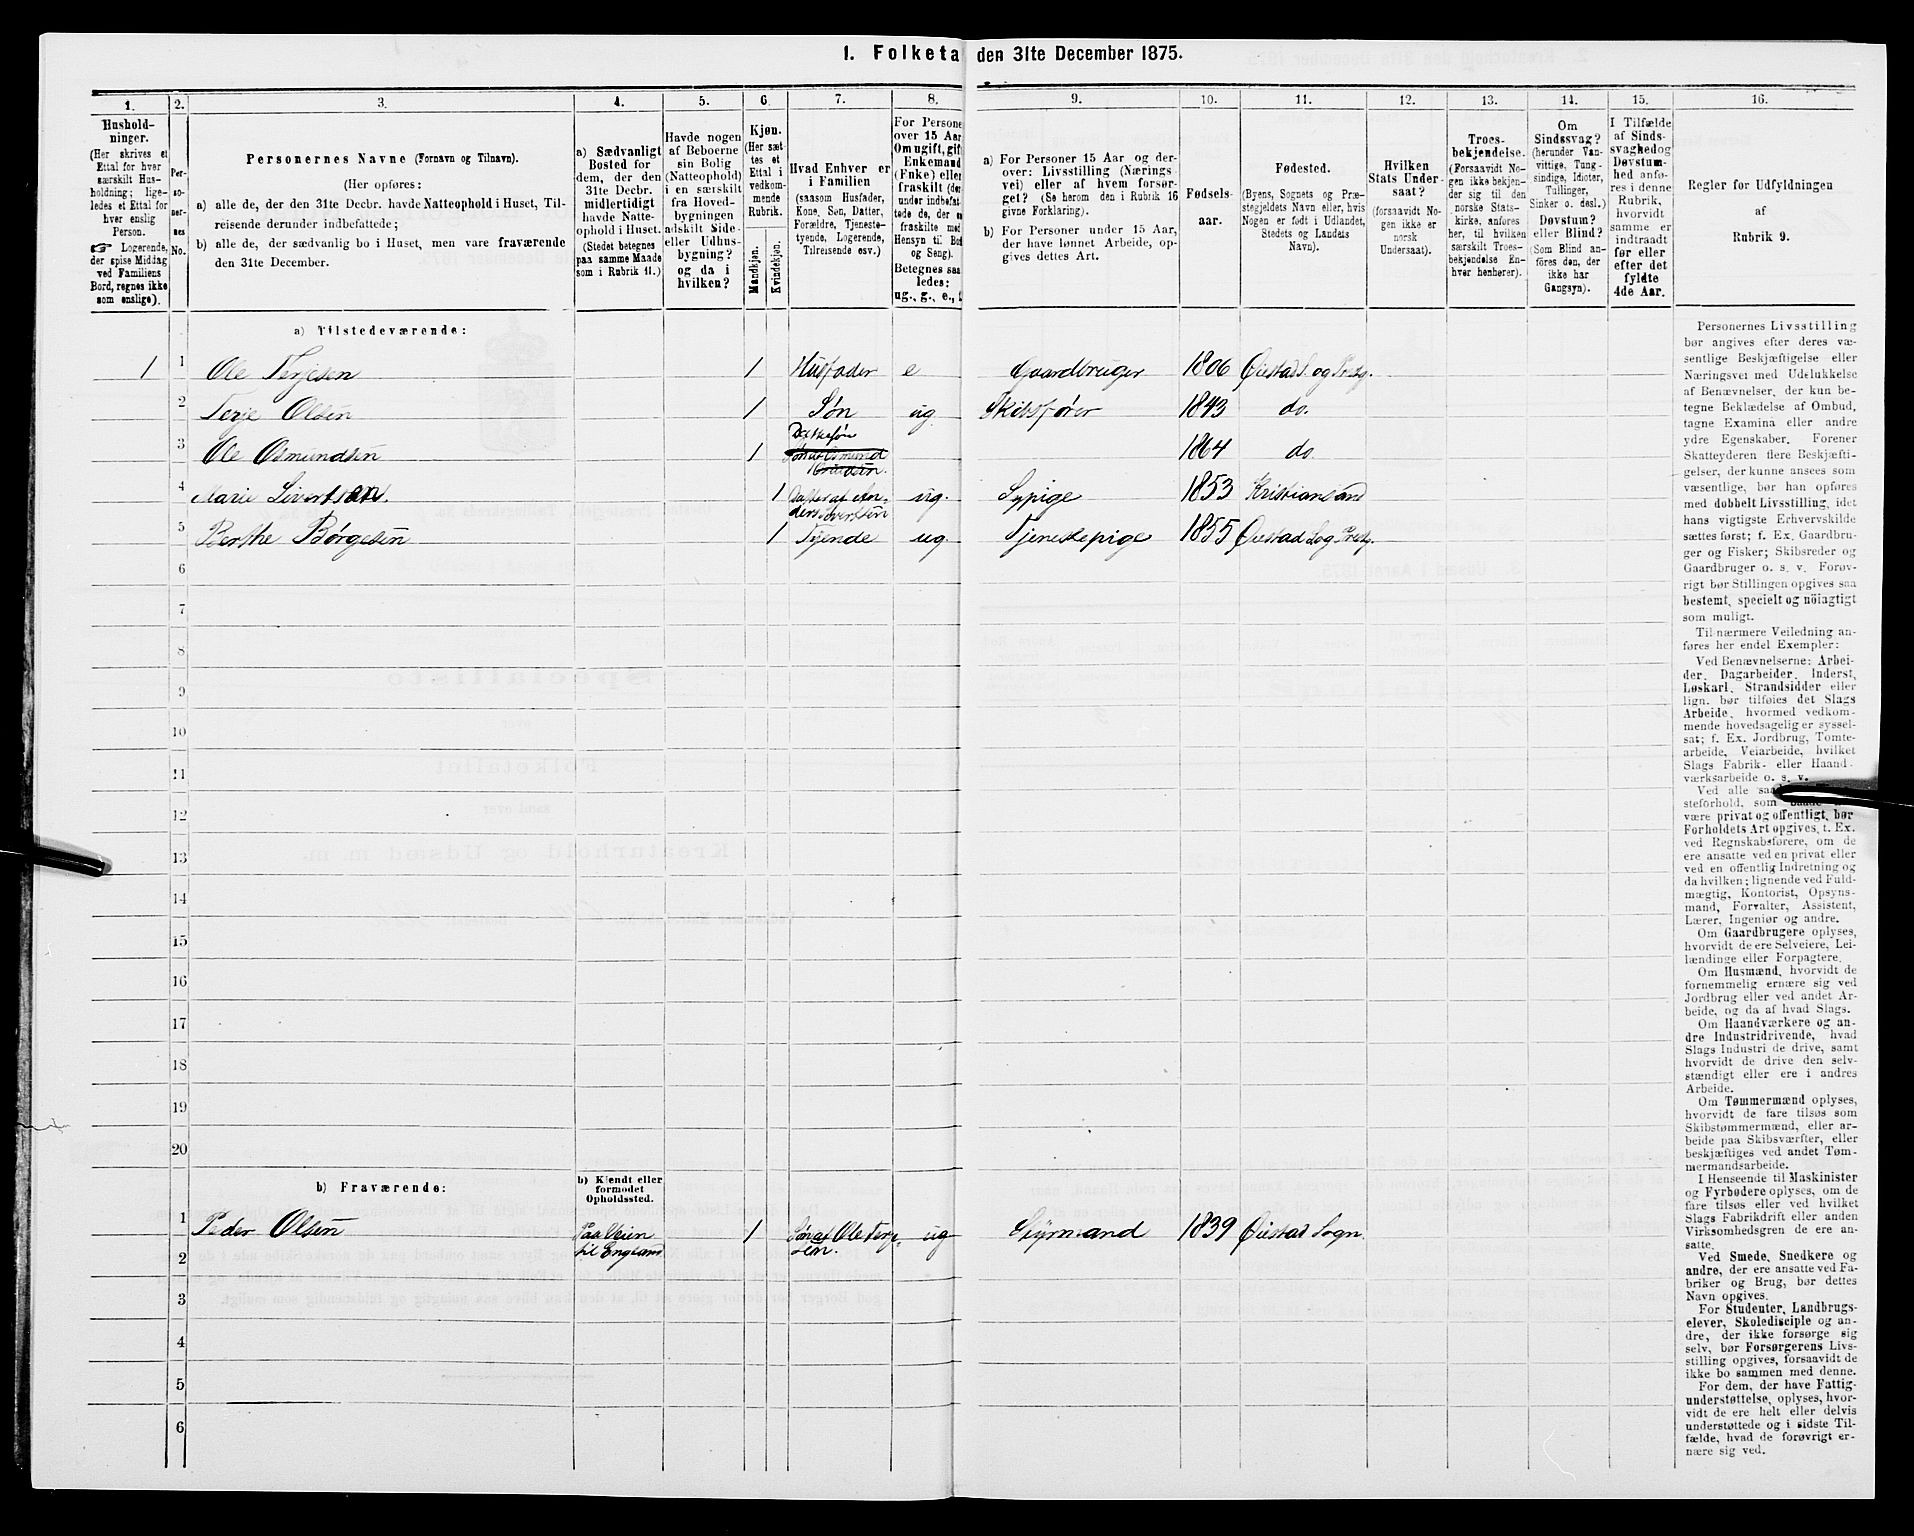 1. Folketa den 31te December 1875.
1. 2. 3. 4. 5. 6. 7. 8. 9. 10. 11. 12. 13. 14. 15. 16.
Hushold-
ninger.
(Her skrives et
Ettal for hver
særskilt Hus-
holdning; lige-
ledes et Ettal for
hver enslig
Person.
☞ Logerende,
der spise Middag
ved Familiens
Bord, regnes ikke
som enslige).
Per-
so-
ner-
nes
No.
Personernes Navne (Fornavn og Tilnavn).
(Her opføres:
a) alle de, der den 31te Decbr. havde Natteophold i Huset, Til-
reisende derunder indbefattede;
b) alle de, der sædvanlig bo i Huset, men vare fraværende
den 31te December.
a) Sædvanligt
Bosted for
dem, der den
31te Decbr.
midlertidigt
havde Natte-
ophold i Huset.
(Stedet betegnes
paa samme Maade
som i Rubrik 11.)
Havde nogen
af Beboerne
sin Bolig
(Natteophold)
i en særskilt
fra Hoved-
bygningen
adskilt Side-
eller Udhus-
bygning?
og da i
hvilken?
Kjøn.
(Her sæt-
tes et
Ettal i
vedkom-
mende
Rubrik.
Mandkjøn.
Kvindekjøn.
Hvad Enhver er
i Familien
(saasom Husfader,
Kone, Søn, Datter,
Forældre, Tjeneste-
tyende, Logerende,
Tilreisende esv.)
For Persone
over 15 Aar
Om ugift, gift
Enkemand
(Enke) eller
fraskilt (der
under indbefat
tede de, der e
fraskilte med
Hensyn til Bor
og Seng).
Betegnes saa
ledes:
ug., g., e., f
a) For Personer 15 Aar og der-
over: Livsstilling (Nærings
vei) eller af hvem forsør-
get? (Se herom den i Rubrik 16
givne Forklaring).
b) For Personer under 15 Aar,
der have lønnet Arbeide, op-
gives dettes Art.
Fødsels-
aar.
Fødested.
(Byens, Sognets og Præ-
stegjeldets Navn eller, hvis
Nogen er født i Udlandet,
Stedets og Landets
Navn).
Hvilken
Stats Under
saat?
(forsaavidt No-
gen ikke er
norsk
Undersaat).
Troes-
bekjendelse.
(Forsaavidt No-
gen ikke bekjen-
der sig til den
norske Stats-
kirke, anføres
her, til hvilken
særskilt Troes-
bekjendelse En-
hver henhører).
Om
Sindssvag?
(herunder Van-
vittige, Tung-
sindige, Idioter,
Tullinger,
Sinker o. desl.)
Døvstum?
eller Blind?
(Som Blind an-
føres den, der
ikke har
Gangsyn).
I Tilfælde
af Sinds-
svaghed og
Døvstum-
hed anfø-
res i denne
Rubrik,
hvorvidt
samme er
indtraadt
før eller
efter det
fyldte
4de Aar.
Regler for Udfyldningen
af
Rubrik 9.
a) Tilstedeværende:
1 1 Ole Terjesen 1 Husfader e Gaardbruger 1806 Øiestad S. og Prestg.
2 Terje Olsen 1 Søn ug. Skibsfører 1843 do.
3 Ole Osmundsen 1 Dattersøn 1864 do
4 Marie Sivertsen. 1 Datter af An-
ders Sivertsen ug. Sypige 1853 Kristiansand
5 Berthe Børgesen 1 Tjende ug. Tjenestepige 1855 Øiestad S. og Prestg.
6
7
8
9
10
11
12
13
14
15
16
17
18
19
20
b) Fraværende:
b) Kjendt eller
formodet
Opholdssted.
1 Peder Olsen Paa Veien
til England 1 Søn af Ole Terje-
sen. ug Styrmand 1839 Øiestad Sogn.
2
3
4
5
6
Personernes Livsstilling
bør angives efter deres væ-
sentlige Beskjæftigelse eller
Næringsvei med Udelukkelse
af Benævnelser, der kun be-
tegne Beklædelse af Ombud,
tagne Examina eller andre
ydre Egenskaber. Forener
Skatteyderen flere Beskjæfti-
gelser, der kunne ansees som
væsentlige, bør han opføres
med dobbelt Livsstilling, idet
hans vigtigste Erhvervskilde
sættes først; f. Ex. Gaardbru-
ger og Fisker; Skibsreder og
Gaardbruger o. s. v. Forøv-
rigt bør Stillingen opgives saa
bestemt, specielt og nöiagtigt
som muligt.
Til nærmere Veiledning an-
føres her endel Exempler:
Ved Benævnelserne: Arbei-
der, Dagarbeider, Inderst,
Løskarl, Strandsidder eller
lign. bør tilføies det Slags
Arbeide, hvormed vedkom-
mende hovedsagelig er syssel-
sat; f. Ex. Jordbrug, Tomte-
arbeide, Veiarbeide, hvilket
Slags Fabrik- eller Haand-
værksarbeide o. s. v.
Ved alle saa
steforhold, som baade
være privat og offentligt, bør
Forholdets Art opgives, t. Ex.
ved Regnskabsførere, om de
ere ansatte ved en privat eller
ved en offentlig Indretning og
da hvilken; lignende ved Fuld-
mægtig, Kontorist, Opsyns-
mand, Forvalter, Assistent,
Lærer, Ingeniør og andre.
Om Gaardbrugere oplyses,
hvorvidt de ere Selveiere, Lei-
lændinge eller Forpagtere.
Om Husmænd, hvorvidt de
fornemmelig ernære sig ved
Jordbrug eller ved andet Ar-
beide, og da af hvad Slags.
Om Haandværkere og an-
dre Industridrivende, hvad
Slags Industri de drive, samt
hvorvidt de drive den selv-
stændigt eller ere i andres
Arbeide.
Om Tømmermænd oplyses,
hvorvidt de fare tilsøs som
Skibstømmermænd, eller ar-
beide paa Skibsværfter, eller
beskjæftiges ved andet Tøm-
mermandsarbeide.
I Henseende til Maskinister
og Fyrbødere oplyses, om de
fare tilsøs eller ved hvilket
Slags Fabrikdrift eller anden
Virksomhedsgren de ere an-
satte.
Ved Smede, Snedkere og
andre, der ere ansatte ved Fa-
briker og Brug, bør dettes
Navn opgives.
For Studenter, Landbrugs-
elever, Skoledisciple og an-
dre, der ikke forsørge sig
selv, bør Forsørgerens Livs-
stilling opgives, forsaavidt de
ikke bo sammen med denne.
For dem, der have Fattig-
understøttelse, oplyses, hvor-
vidt de ere helt eller delvis
understøttede og i sidste Til-
fælde, hvad de forøvrigt er-
nære sig ved.